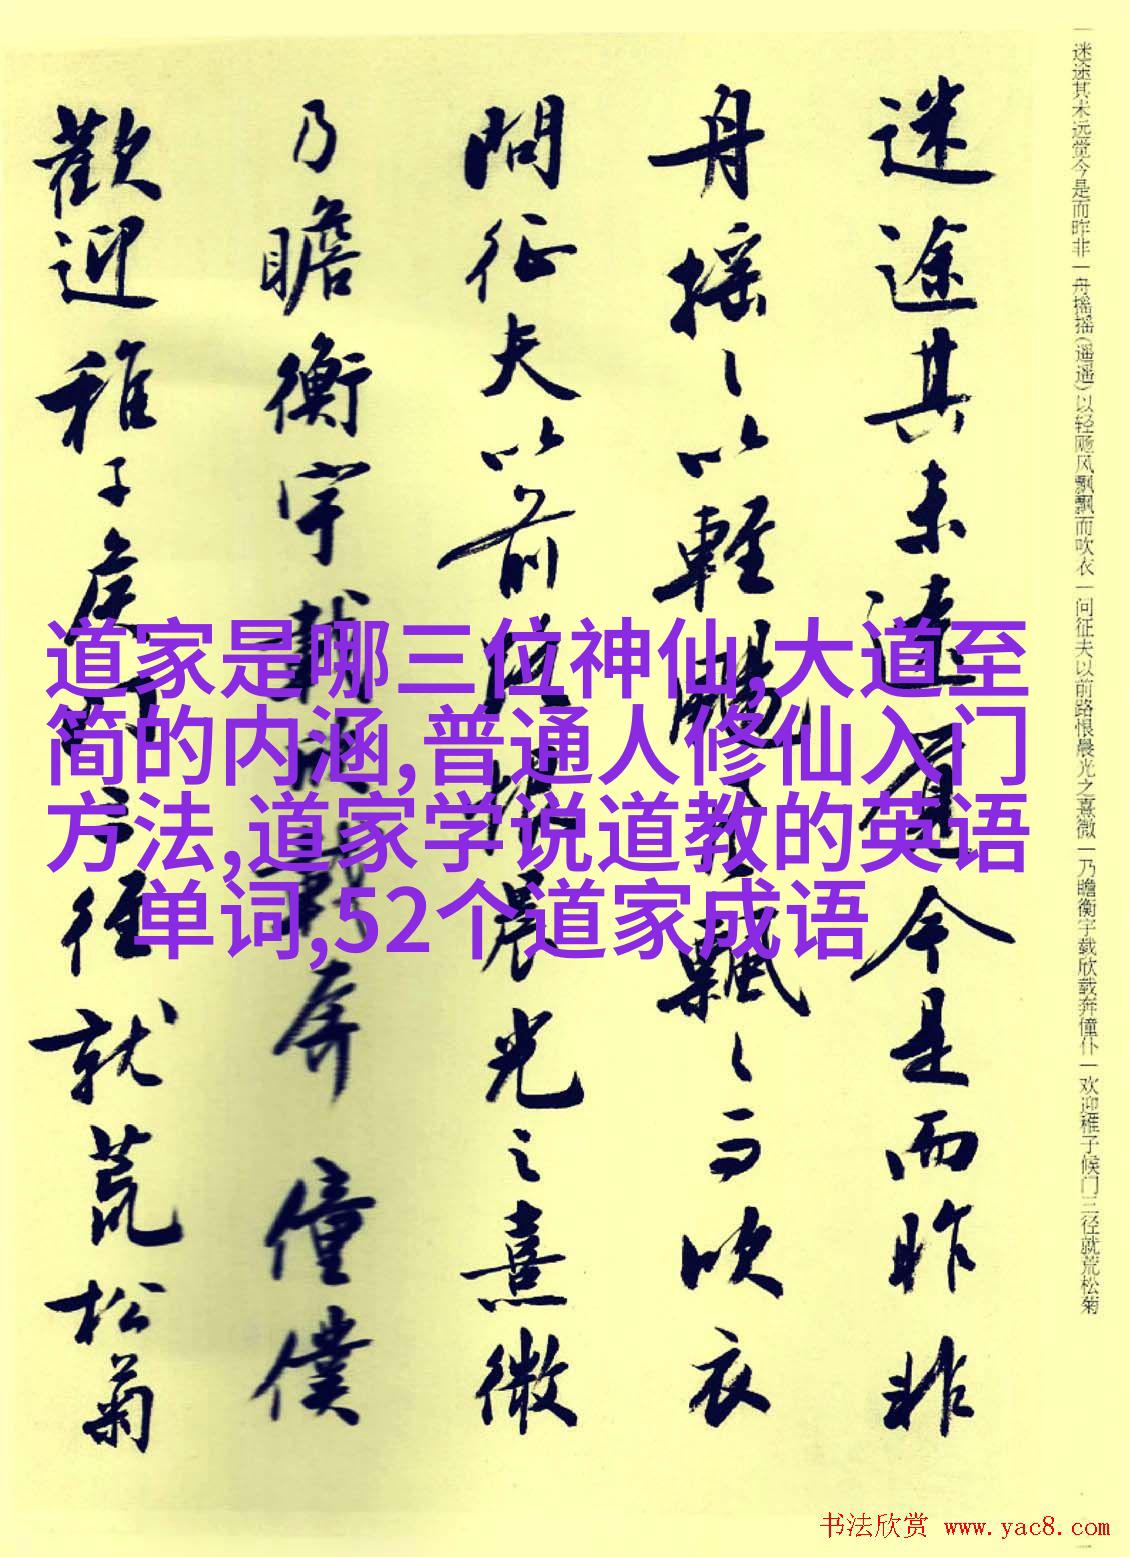 一迷途其未远觉今是而昨非一舟摇摇(遥遥)以轻飏风飘飘而吹衣一问征夫以前路恨晨光之熹微一乃瞻衡宇载欣载奔僮仆一欢迎稚子候门三径就荒松菊
迷途其未遠覺今是而昨非
舟摇〻以輕颺風飄〻而吹衣
問征夫以前路恨晨光之熹微
乃瞻衡宇載欣載奔僮僕
歡迎稚子候門三徑就荒松菊
道家是哪三位神仙,大道至
简的内涵,普通人修仙入门
方法,道家学说道教的英语
单词,52个道家成语
书法欣赏 www.yac8.com